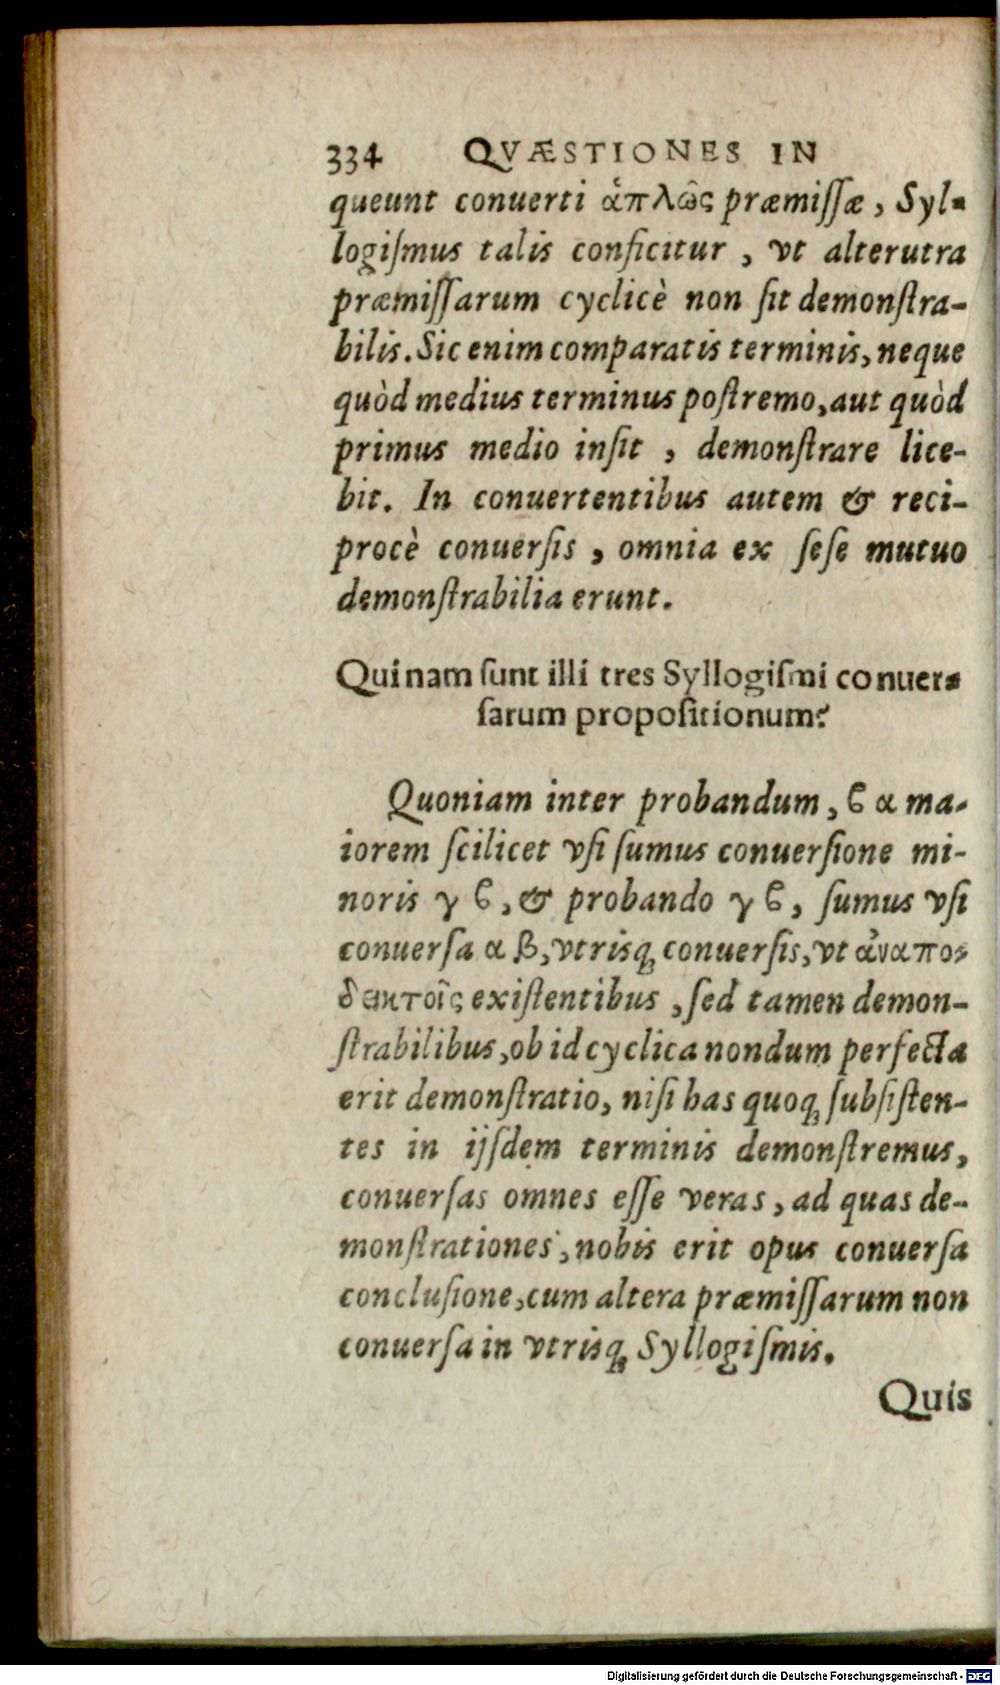 334 QVÆSTIONES IN
queunt conuerti ἁπλῶς præmiſſæ, Syl-
logiſmus talis conficitur, vt alterutra
præmiſſarum cyclicè non ſit demonſtra-
bilis. Sic enim comparatis terminis, neque
quòd medius terminus poſtremo, aut quòd
primus medio inſit, demonſtrare lice-
bit. In conuertentibus autem & reci-
procè conuerſis, omnia ex ſeſe mutuo
demonſtrabilia erunt.
Quinam ſunt illi tres Syllogiſmi conuer-
ſarum propoſitionum?
Quoniam inter probandum, ϐ α ma-
iorem ſcilicet vſi ſumus conuerſione mi-
noris γ ϐ, & probando γ ϐ, ſumus vſi
conuerſa α β, vtrisq́ꝫ conuerſis, vt ἀναπο-
δεικτοῖς exiſtentibus, ſed tamen demon-
ſtrabilibus, ob id cyclica nondum perfecta
erit demonſtratio, niſi has quoqꝫ ſubſiſten-
tes in ijſdem terminis demonſtremus,
conuerſas omnes eſſe veras, ad quas de-
monſtrationes, nobis erit opus conuerſa
concluſione, cum altera præmiſſarum non
conuerſa in vtrisqꝫ Syllogiſmis.
Quis
Digitalisierung gefördert durch die Deutsche Forschungsgemeinschaft - DFG